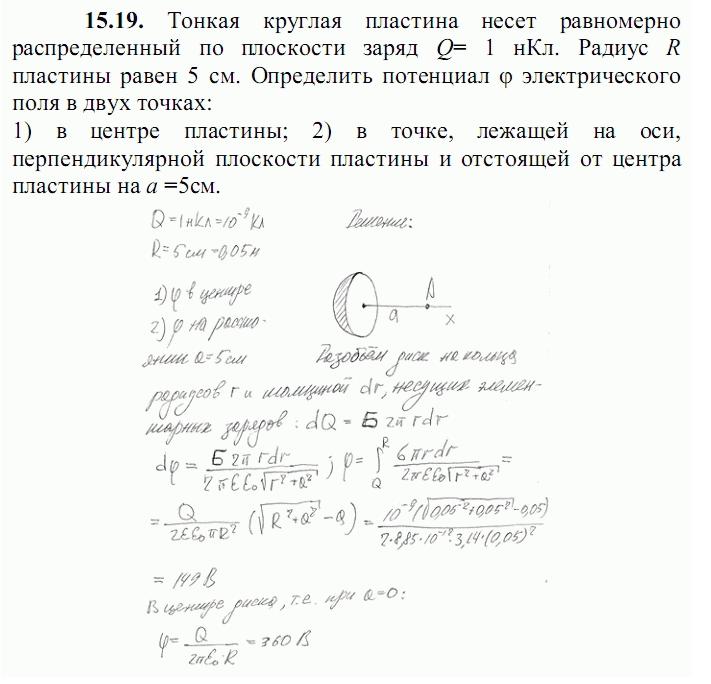 15.19. Тонкая круглая пластина несет равномерно
распределенный по плоскости заряд Q= 1 нКл. Радиус R
пластины равен 5 см. Определить потенциал φ электрического
поля в двух точках:
1) в центре пластины; 2) в точке, лежащей на оси,
перпендикулярной плоскости пластины и отстоящей от центра
пластины на a =5см.
Q = 1 нКл = 10⁻⁹ Кл
Решение:
R = 5 см = 0,05 м
1) φ в центре
2) φ на рассто-
янии a = 5 см
A
a
x
Разобьём диск на кольца
радиусов r и толщиной dr, несущих элемен-
тарных зарядов: dQ = Б 2π r dr
dφ = Б 2π r dr / 2πεε₀√(r²+a²) ; φ = ∫ₐᴿ бπrdr / 2πεε₀√(r²+a²) =
= Q / 2εε₀πR² (√(R²+a²) - a) = 10⁻⁹(√(0,05²+0,05²)-0,05) / 2·8,85·10⁻¹²·3,14·(0,05)²
= 149 В
В центре диска, т.е. при a=0:
φ = Q / 2πε₀·R = 360 В